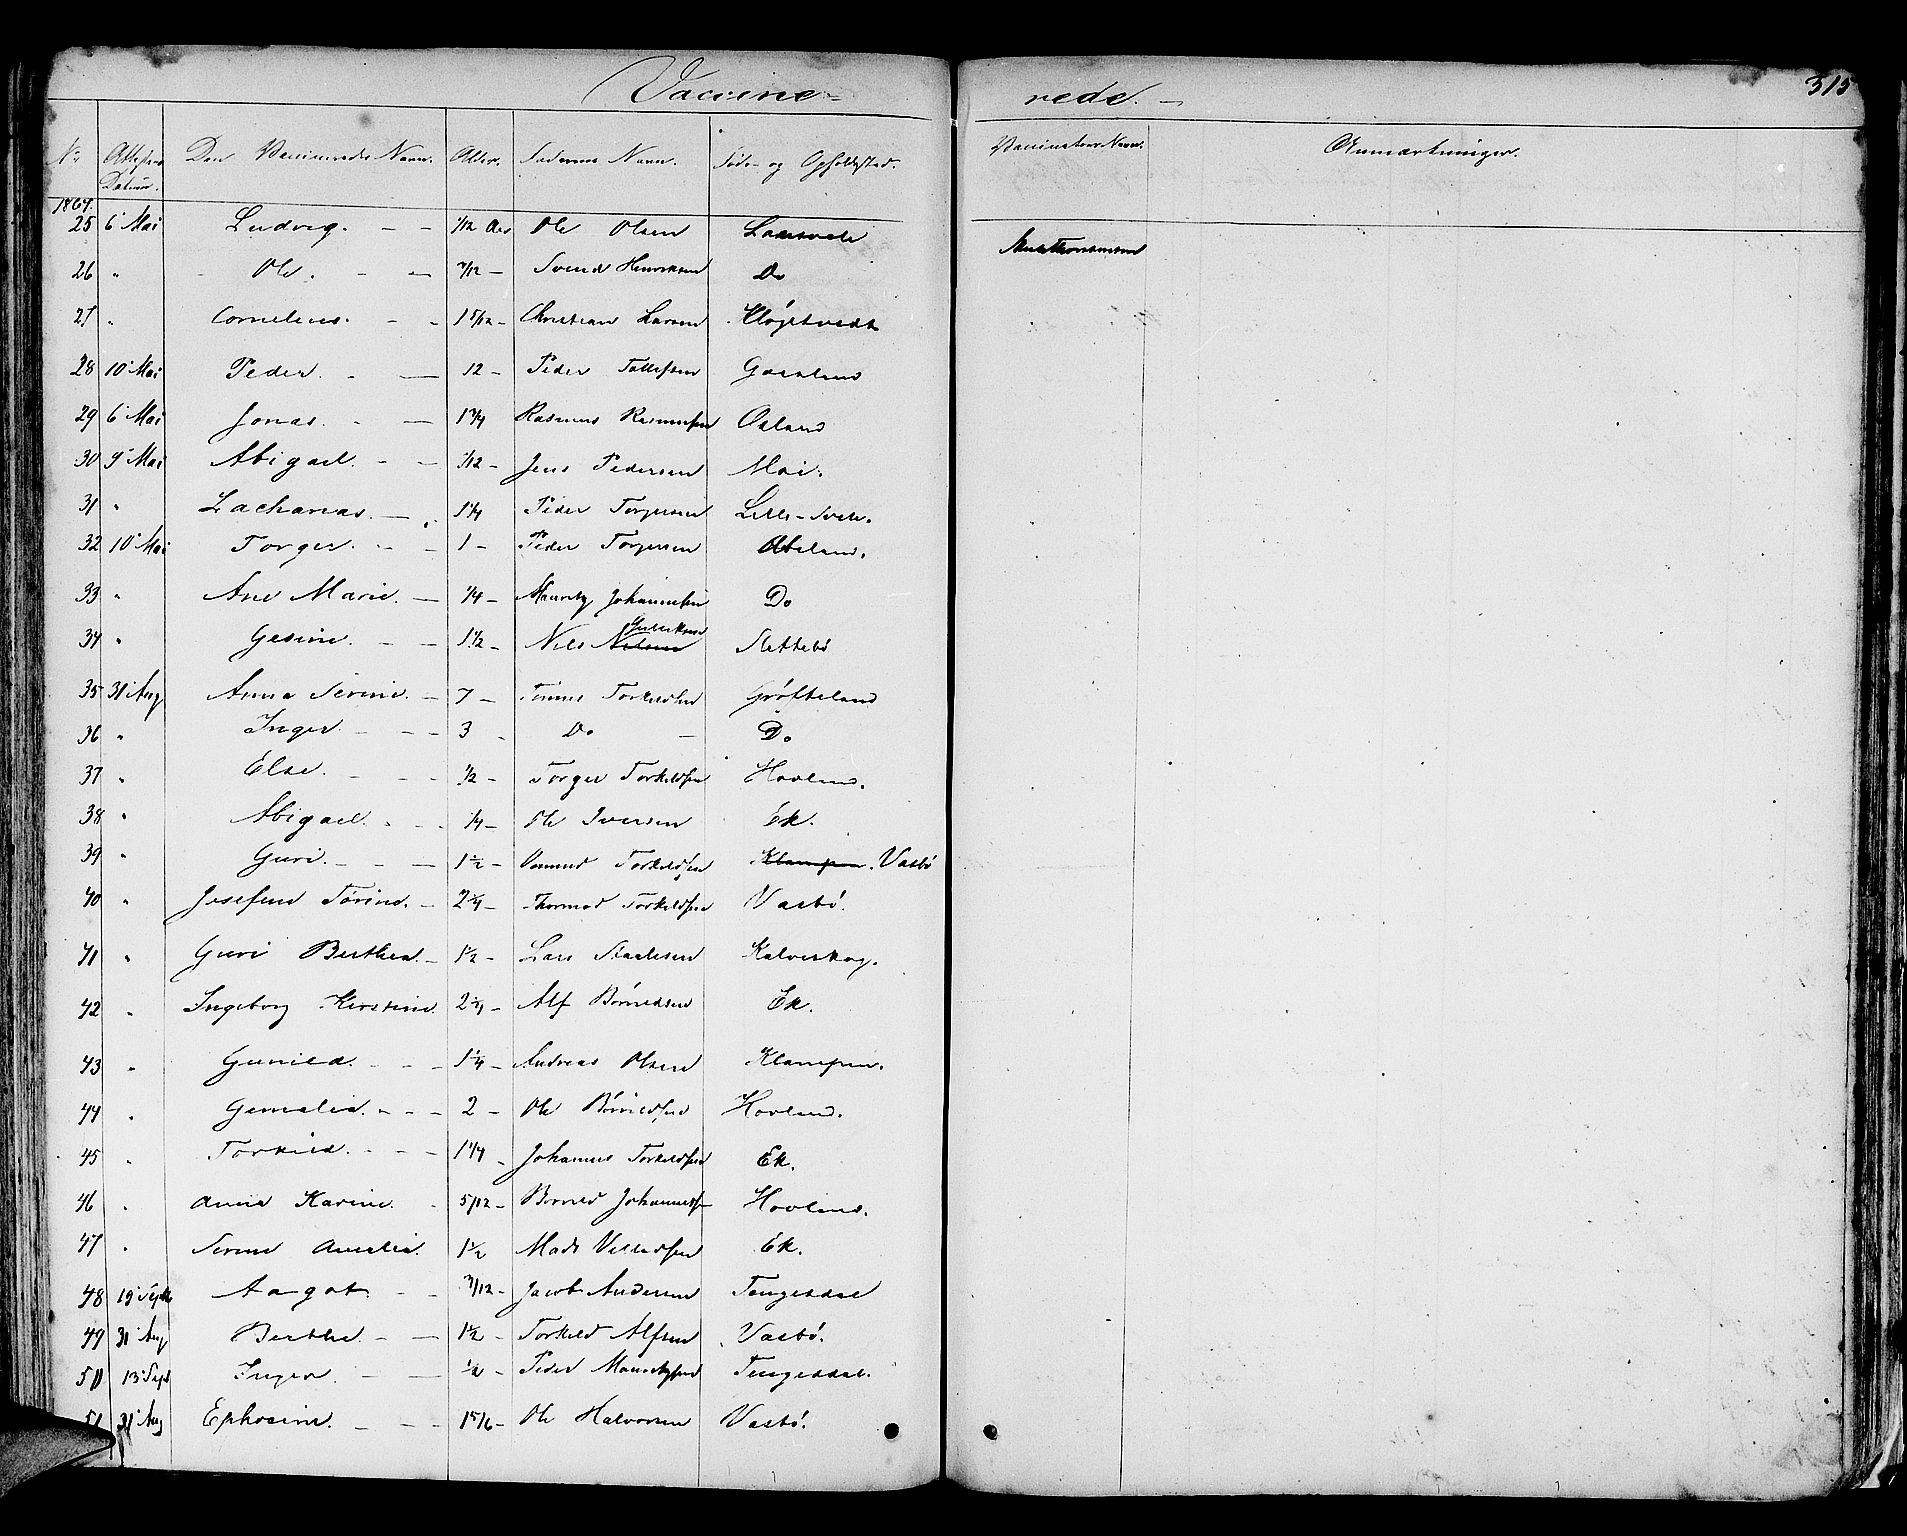 Vaccine-rede. - 315
No Attestens Datum. Den Vaccineredes Navn. Alder. Faderens Navn. Føde- og Opholdsted. Vaccinateur Navn. Anmærkninger.
1867.
25 6' Mai Ludvig. - - Ole Olsen
26 " Ole. - - 7/12 - Svend Henriksen Do
27 " Cornelius. - - 1 5/12 - Christian Larsen
28 10' Mai Peder. - - 12 - Peder Tollefsen
29 6' Mai Jonas. - - 1 3/4 Rasmus Rasmussen Aaland
30 9' Mai Abigael. - - Jens Pedersen Moi.
31 " Zacharias. - 1 1/4 Peder Torgersen Lille-Svele.
32 10' Mai Torger. - - 1 - Peder Torgersen
33 " Ane Marie. - 1/4 - Mauritz Johannesen Do
34 " Gesine. - - 1 1/2 - Nils Nilsen Slettebø
35 31' Aug Anna Serine. - 7 - Tønnes Torkildsen Grøfteland
36 " Inger. - - - 3 - Do - Do
37 " Else. - - - 1/2 - Torger Torkildsen Hovland.
38 " Abigael. - - - 1/4 - Ole Iversen Ek.
39 " Guri. - - - 1 1/2 - Torkildsen Klampen. Vasbø
40 " Josefine Torine. - 2 1/4 - Thormod Torkildsen Vasbø.
41 " Guri Berthea. - 1 1/2 - Lars Staalesen Kalveskog.
42 " Ingeborg Kirstine. Alf Børildsen Ek.
43 " Gunild. - - - 1 1/4 - Andreas Olsen Klampen.
44 " Gemalia. - - - 2 - Ole Børildsen Hovland.
45 " Torkild. - - - 1 1/4 - Johannes Torkildsen Ek.
46 " Anna Karine. - 5/12 - Børild Johannessen Hovland.
47 " Serine Amalia. 1 1/2 Mads Villadsen Ek.
48 19' Sept Aagot. - - 3/12 - Jacob Andersen Tengesdal
49 31' Aug Berthe - - 1 1/2 - Torkild Alfsen Vasbø.
50 13' Sept Inger. - - 1/2 - Peder Mauritzsen Tengesdal.
51 31' Aug Ephosine. - - - 1 5/6 - Ole Halvorsen Vasbø.